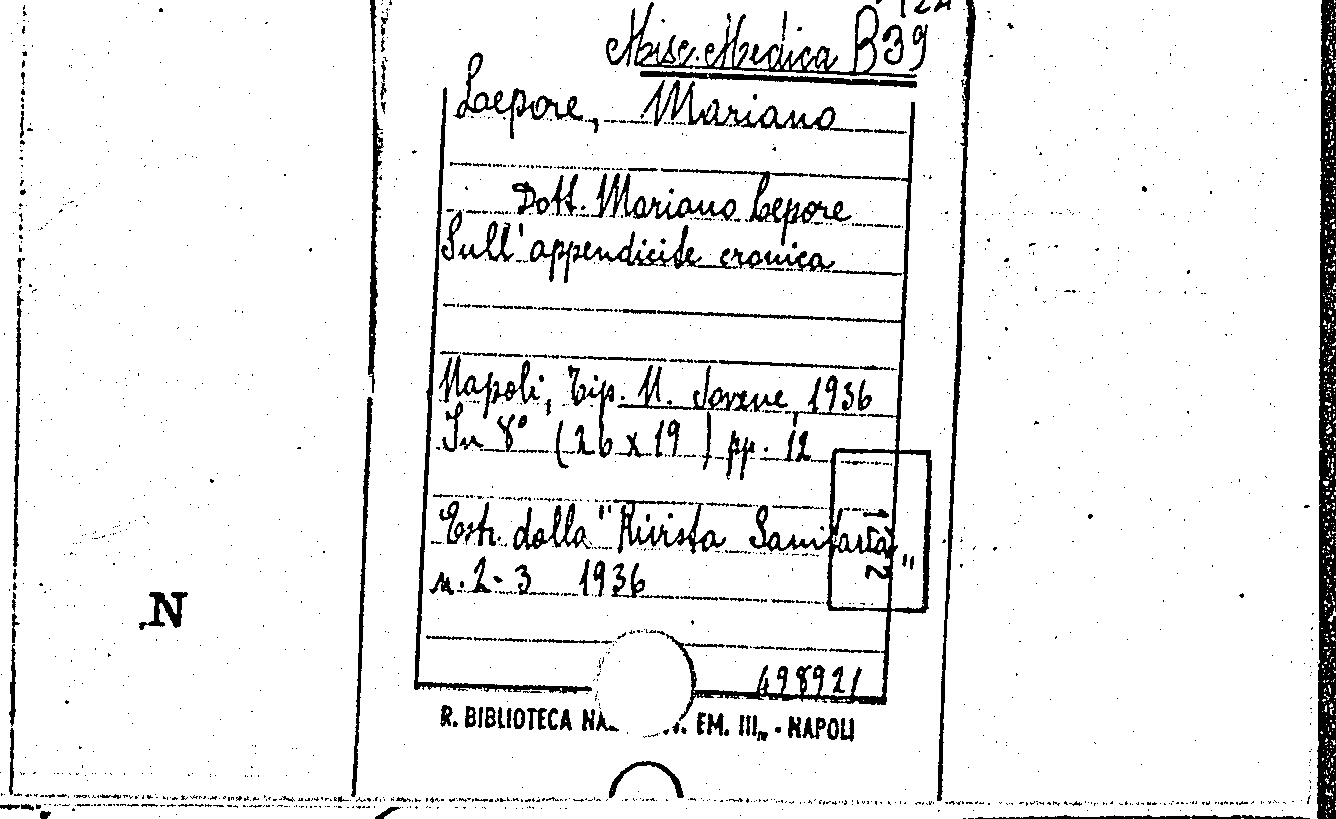 Misc. Medica B39
Lepore, Mariano
Dott. Mariano Lepore
Sull'appendicite cronica
Napoli, Tip. N. Jovene, 1936
In 8° (26 x 19) pp. 12
Estr. dalla "Rivista Sanitaria"
n. 2-3 1936
N
R. BIBLIOTECA EM. III„ - NAPOLI